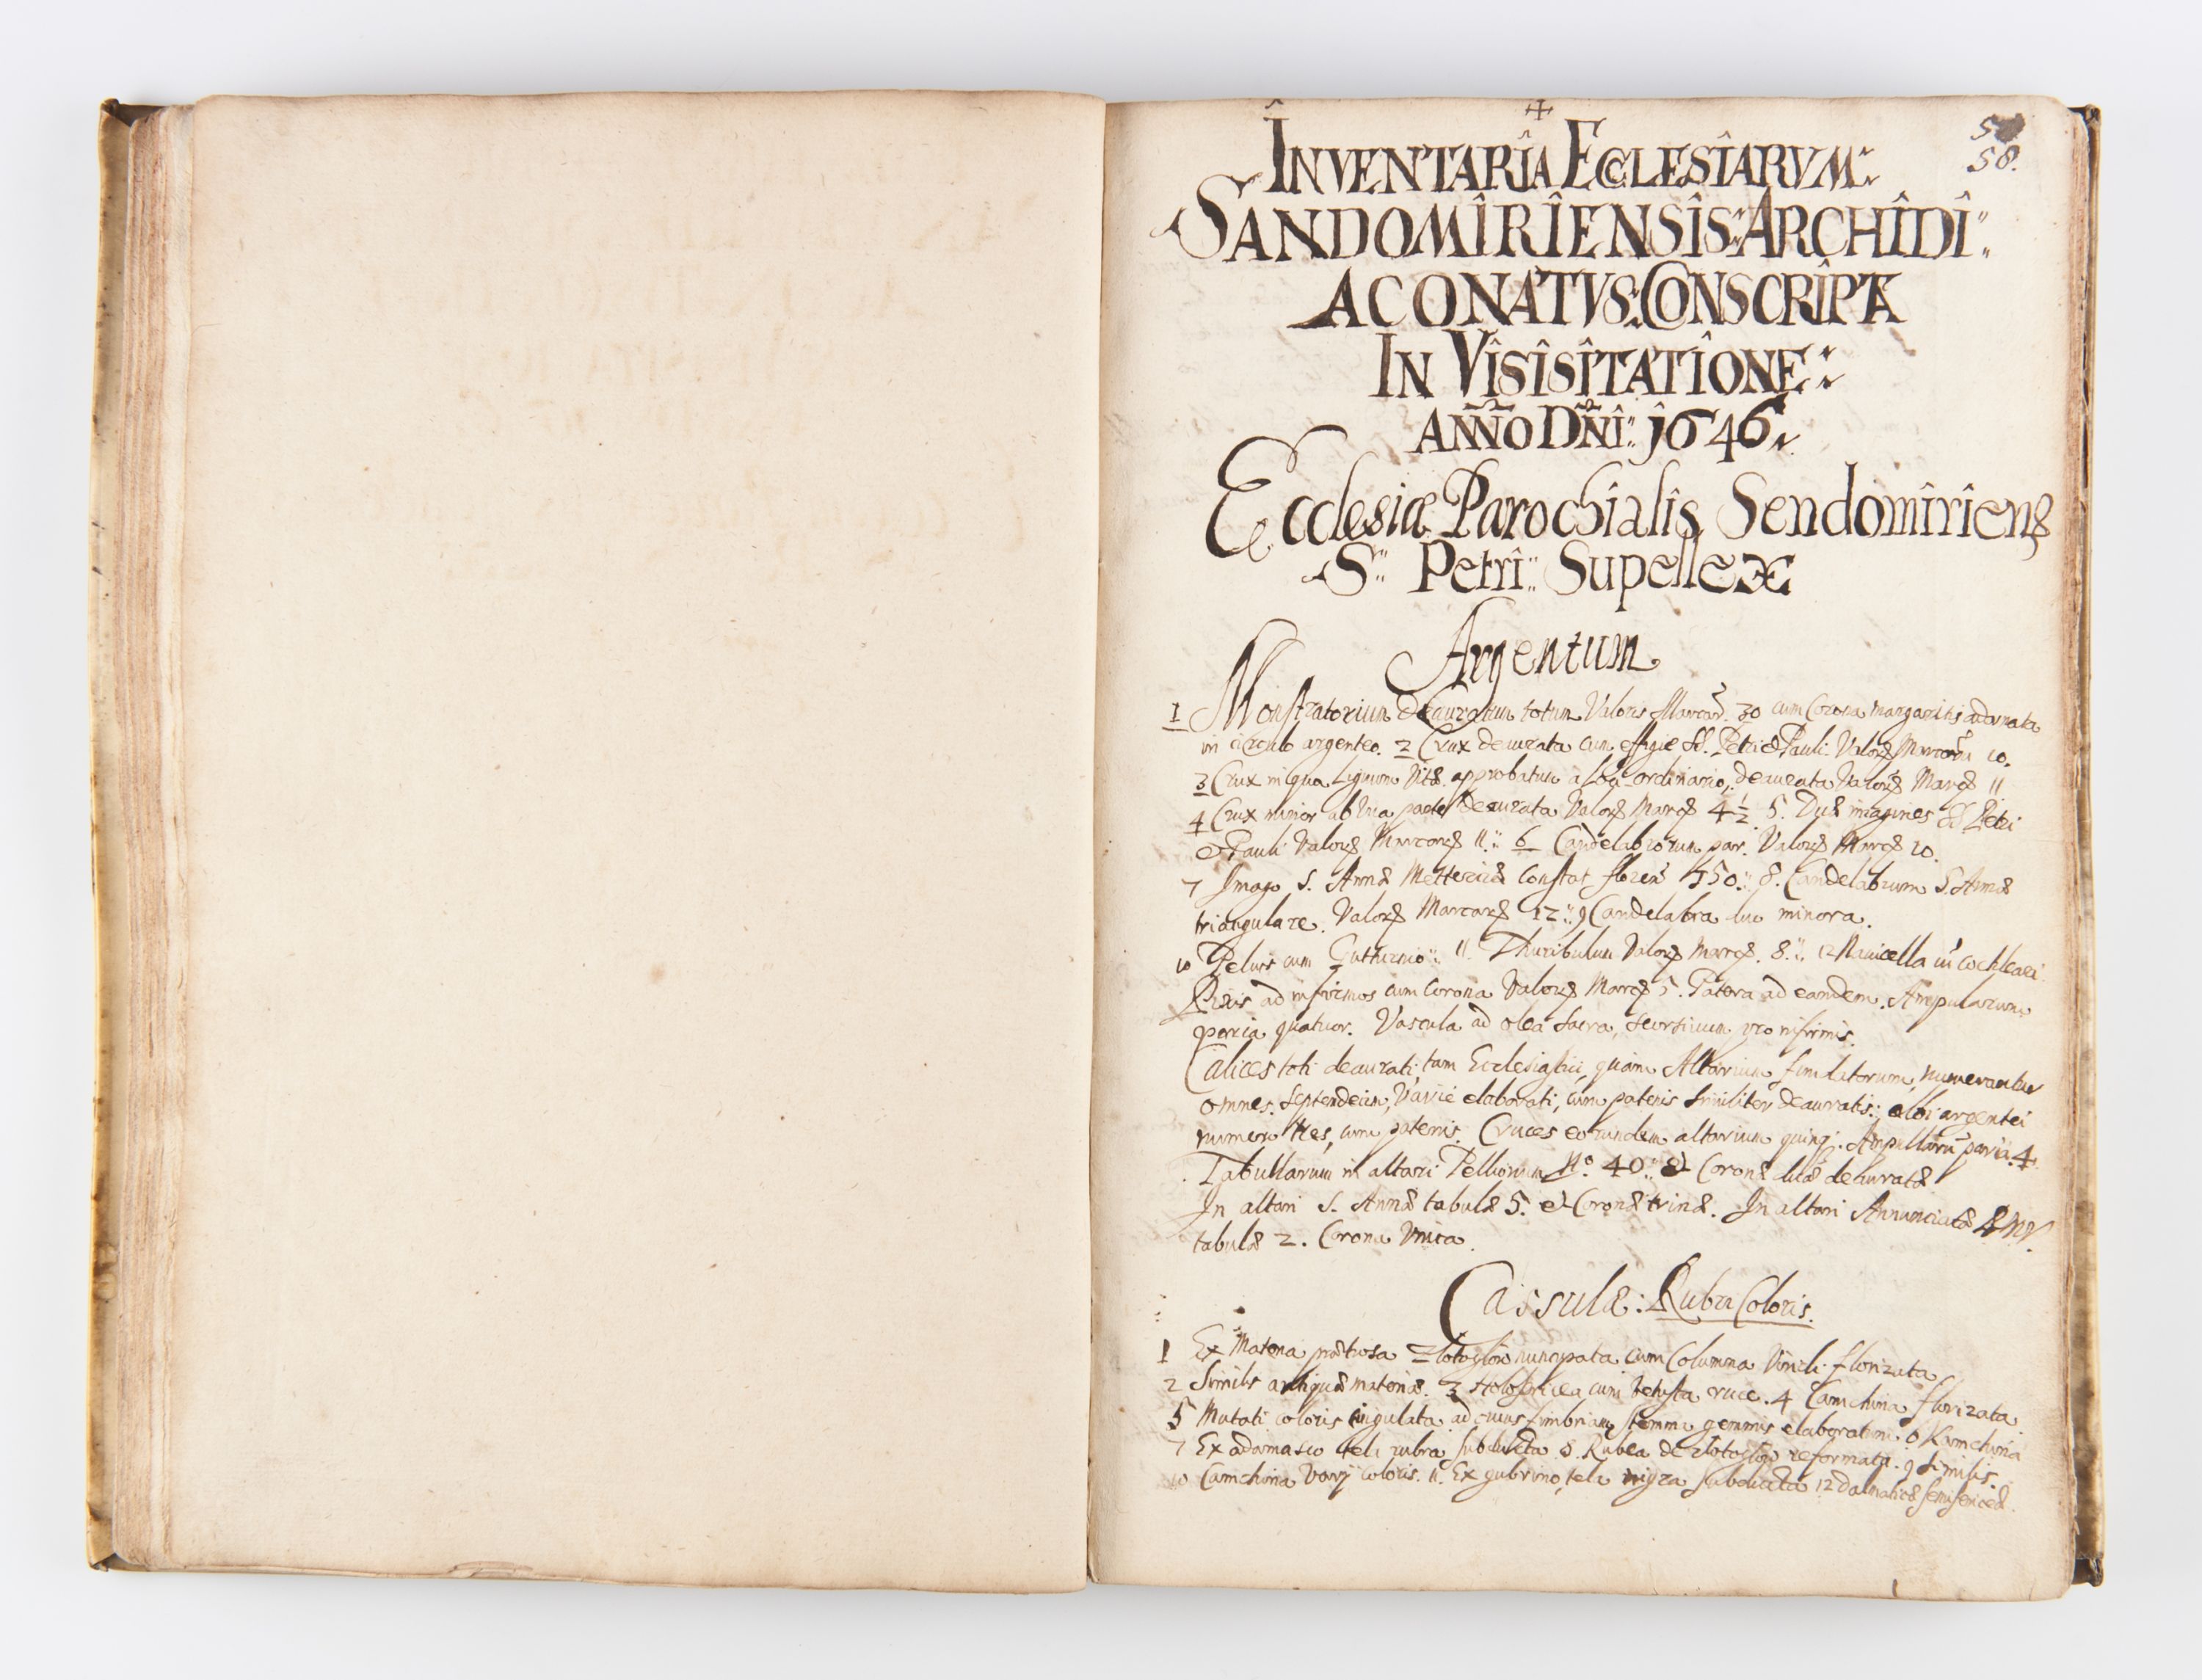 +
INVENTARIA ECCLESIARVM
58.
SANDOMIRIENSIS ARCHIDI
ACONATVS: CONSCRIPTA
IN VISISITATIONE:
ANNO DNI: 1646
Ecclesiæ Parochialis Sendomiriens
S. Petri Supellex
Argentum
1 Monstratorium Deauratum totum Valoris Marcar. 30 cum Corona margaritis adornata
in circulo argenteo. 2 Crux deaurata cum effigie SS. Petri & Pauli. Valoris Marcaru 10.
3 Crux in qua Lignum Vitæ approbatum a Loci ordinario, deaurata Valoris Marcs 11
4 Crux minor ab una parte deaurata Valoris Marcs 4 1/2. 5. Duæ imagines SS Petri
et Pauli Valoris Marcars 11. 6 Candelabrorum par. Valoris Marcs 20.
7 Imago S. Annæ constat floren 550. 8. Candelabrum S Annæ
triangulare. Valoris Marcars 12. 9 Candelabra duo minora.
10 Pelvis cum Gutturnio. 11 Thuribulum Valoris Marcs. 8. 12 Navicella cu cochleari
Pixis ad infirmos cum Corona Valoris Marcs 5. Patera ad eandem. Ampularum
paria quatuor. Vascula ad olea sacra, seorsivum pro infirmis.
Calices toti deaurati, tam Ecclesiastici, quam Altarium fundatorum, numerantur
omnes. Septendecim, Varie elaborati, cum patenis similiter deauratis: albi argentei
numero tres, cum patenis. Cruces eorundem altarium quinq. Ampullaru paria. 4.
Tabullarum in altari Pellionum No. 40. & Coronæ duæ deauratæ
In altari S. Annæ tabulæ 5. et Coronæ trinæ. In altari Annunciatæ BMV.
tabulæ 2. Corona Unica.
Cassulæ: Rubri Coloris.
1 Ex Materia prætiosa Zlotoglow nuncupata cum Columna Viridi florizata
2 Similis antiquæ materiæ. 3 Holosericea cum vetusta cruce. 4 Camchina florizata
5 Mutati coloris cingulata ad cuius fimbriam stemma gemmis elaboratum. 6 Kamchina
7 Ex adamasco tela rubra subducta 8. Rubea de zlotoglow reformata. 9 Similis.
10 Camchina varij coloris. 11. Ex tela nigra subducta 12 dalmaticæ